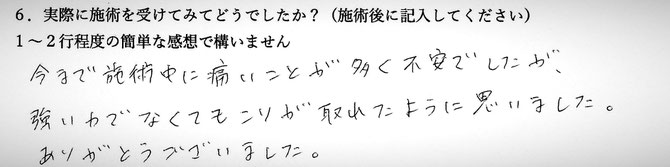 6．実際に施術を受けてみてどうでしたか？（施術後に記入してください）
1～2行程度の簡単な感想で構いません
今まで施術中に痛いことが多く不安でしたが、
強い力でなくてもコリが取れたように思いました。
ありがとうございました。